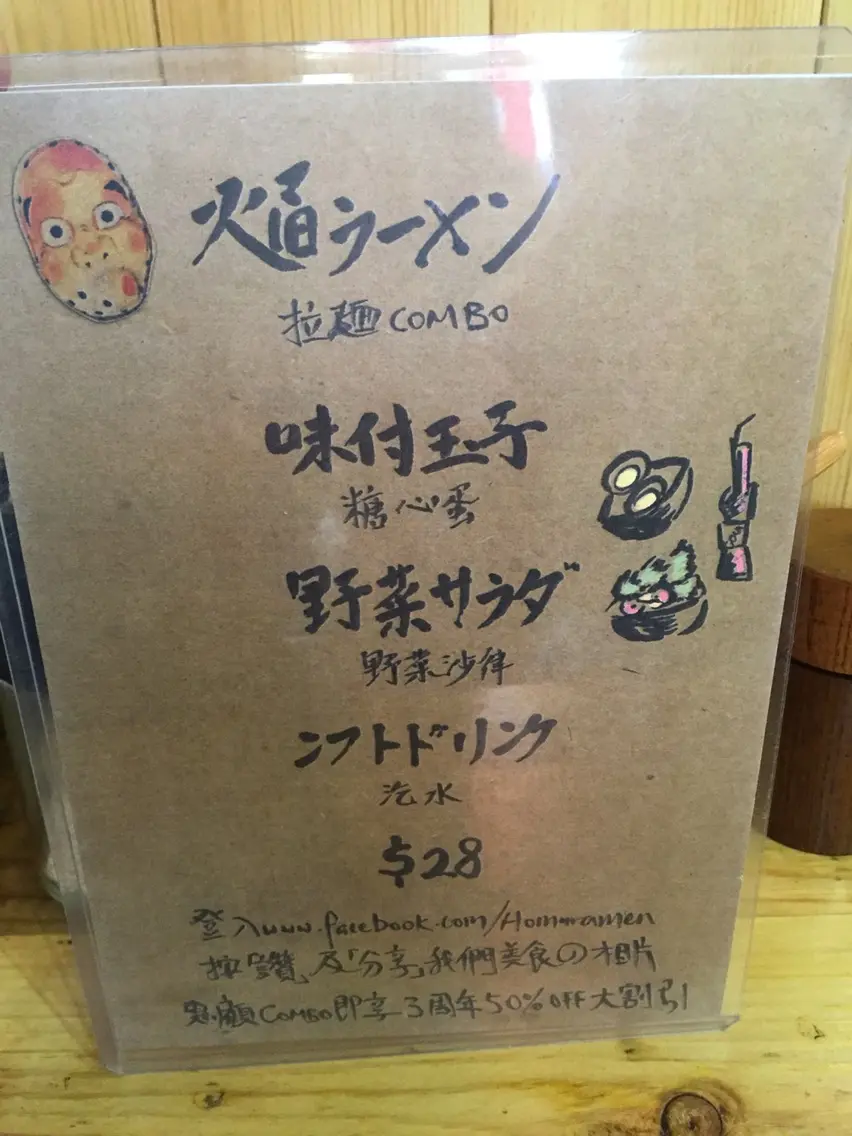 焰ラーメン
拉麵COMBO
味付玉子
糖心蛋
野菜サラダ
野菜沙律
ソフトドリンク
汽水
$28
登入www.facebook.com/Homuramen
按「讚」及「分享」我們美食の相片
惠顧COMBO即享3周年50%OFF大割引